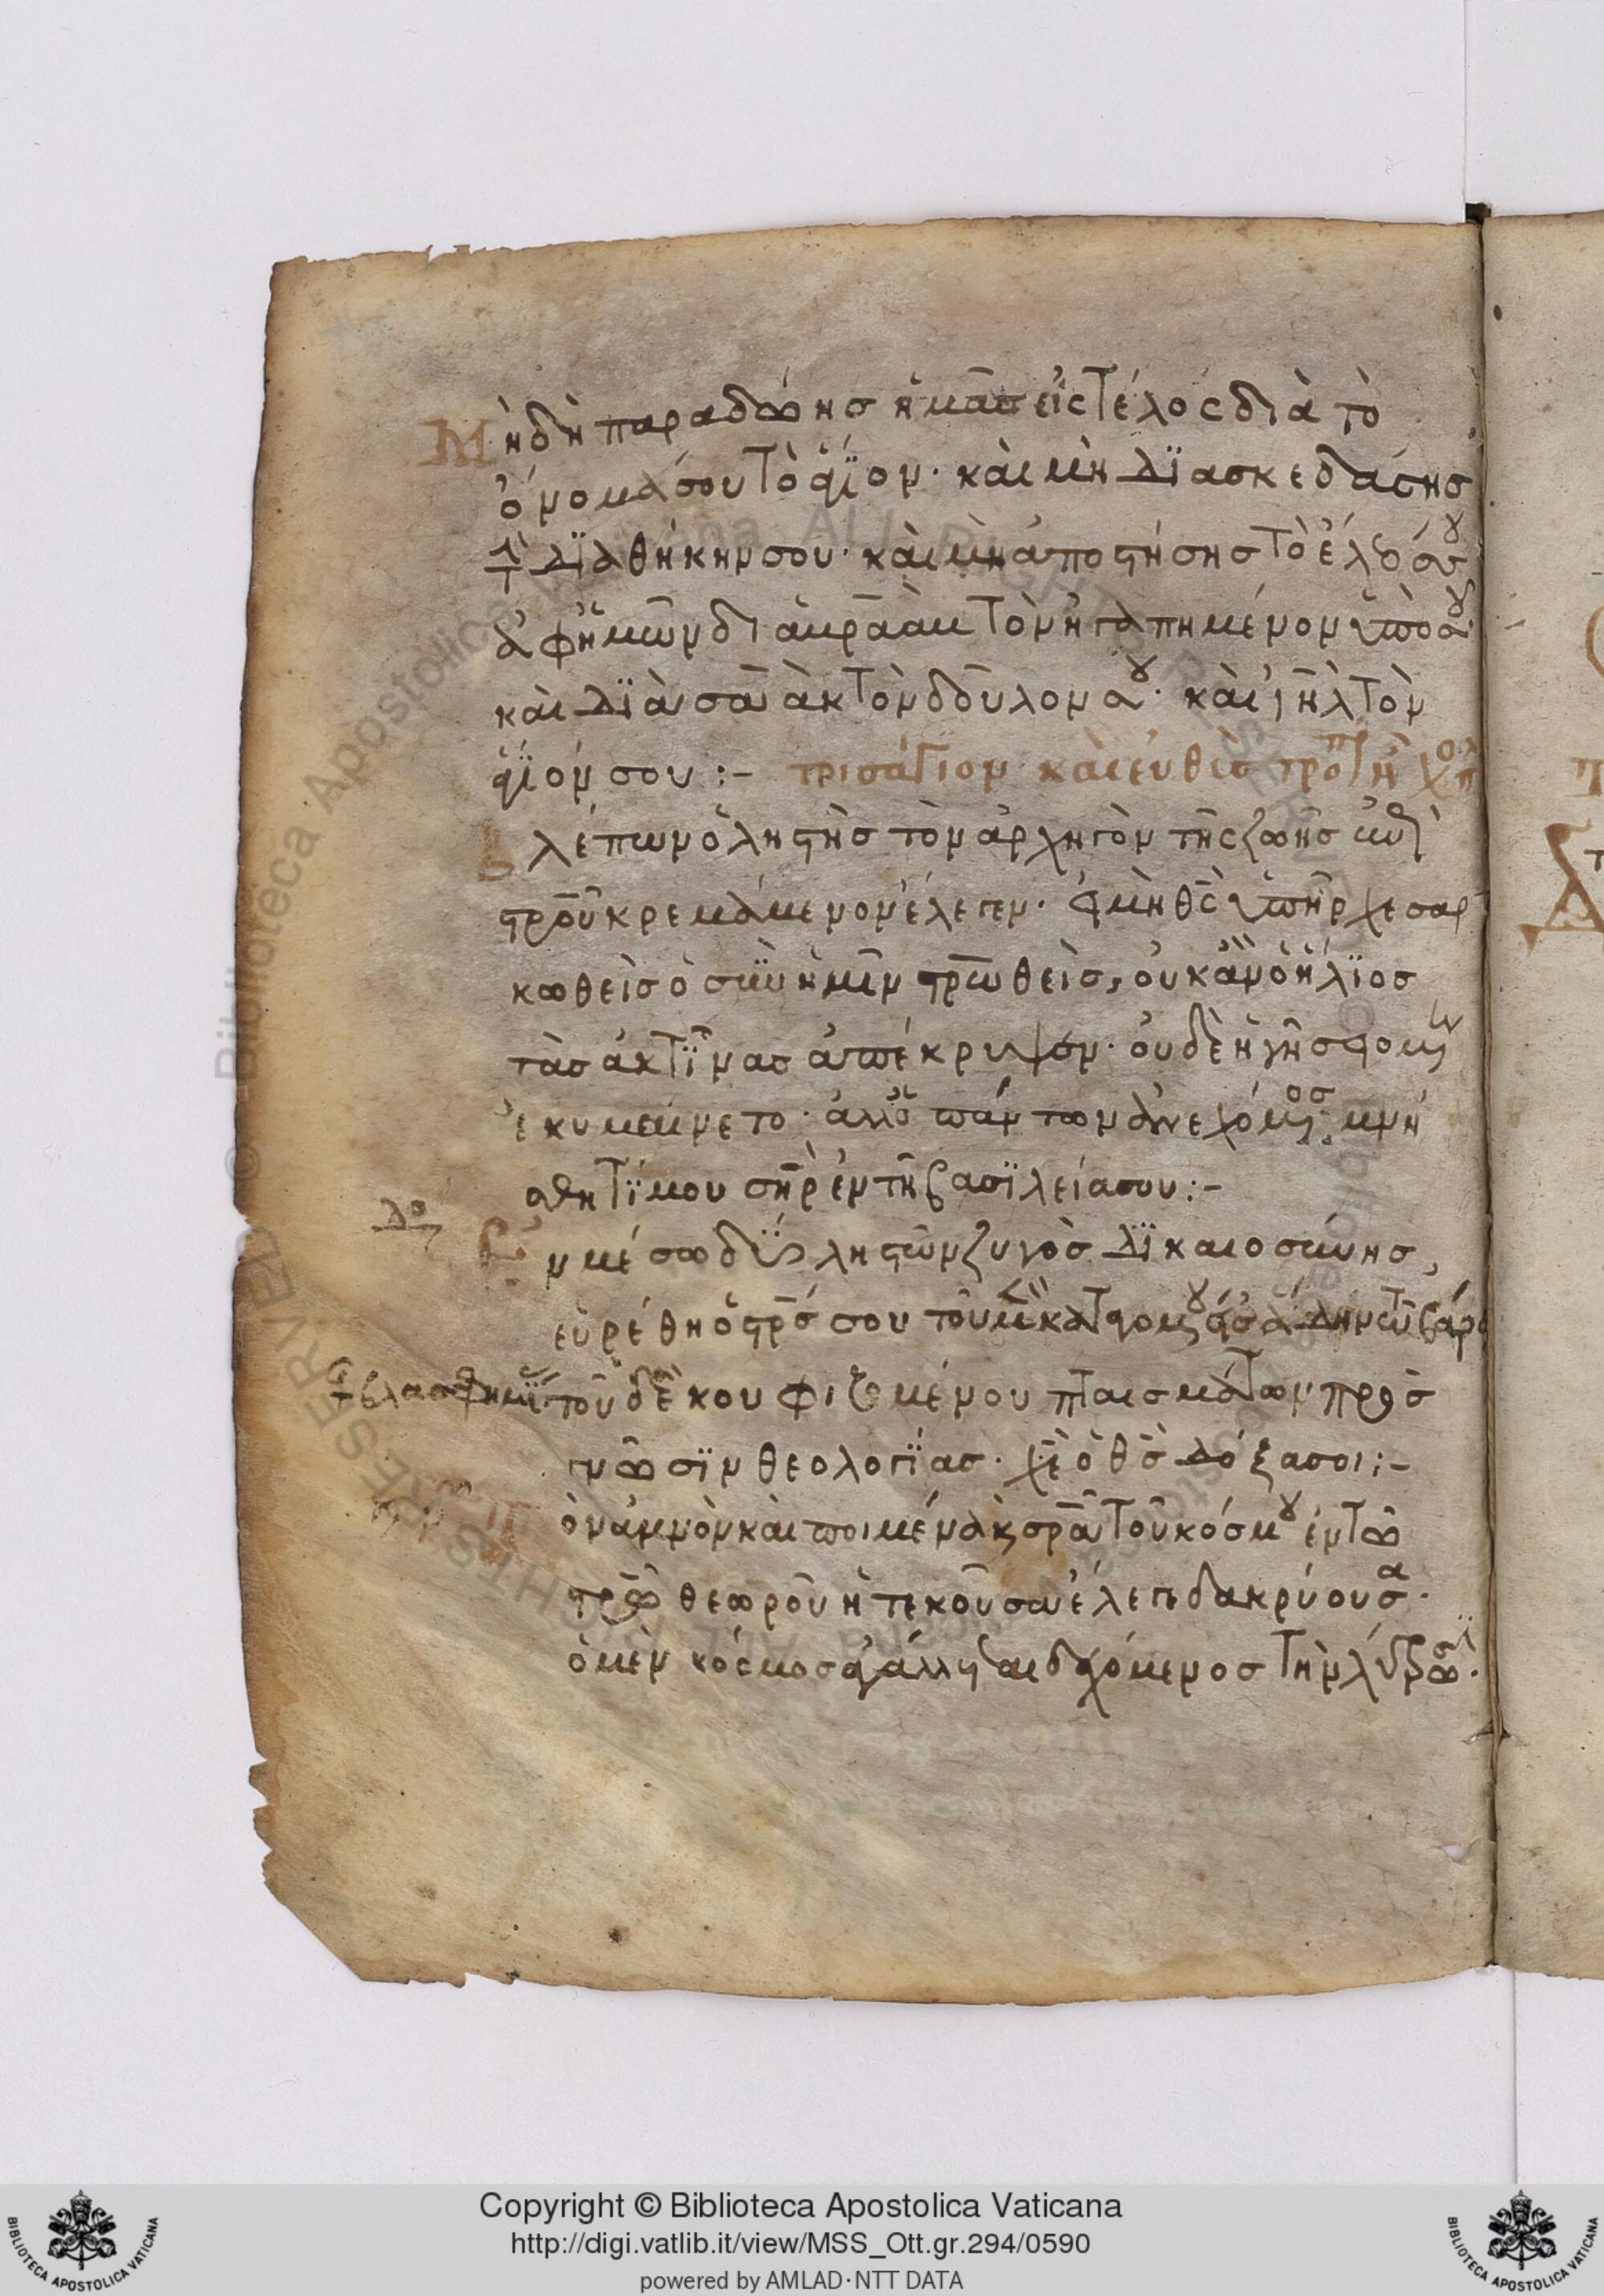 Μὴ δὴ παραδώης ἡμᾶς εἰς τέλος διὰ τὸ
ὄνομά σου τὸ ἅγϊον· καὶ μὴ δϊασκεδάσης
τὴν δϊαθήκην σου· καὶ μὴ ἀποστήσης τὸ ἔλεός σου
ἀφ ἡμῶν δι ἀβραὰμ τὸν ἠγαπημένον ὑπὸ σοῦ·
καὶ δϊὰ ἰσαὰκ τὸν δοῦλον σου· καὶ ἰηλ τὸν
ἅγϊόν σου :- τρισάγιον καὶ εὐθὺς τροπ
Βλέπων ὁ ληστὴς τὸν ἀρχηγὸν τῆς ζωῆς ἐπὶ
στρου κρεμάμενον ἔλεγεν· εἰ μὴ θς ὑπῆρχε σαρ
κωθεὶς ὁ σὺν ἡμῖν στρωθείς, οὐκ ἂν ὁ ἥλϊος
τὰς ἀκτῖνας ἀπέκρυψεν· οὐδὲ ἡ γῆ
ἐκυμαίνετο· ἀλλ ὁ πάντων ἀνεχόμενος· μνή
σθητϊ μου κε ἐν τῇ βασϊλεία σου :-
δο
Ἐν μέσω δύο ληστῶν ζυγὸς δϊκαιοσύνης,
εὑρέθη ὁ στρός σου τοῦ μὲν καταγομένου εἰς ἅδην τῶ βάρει
τ βλασφημίας τοῦ δὲ κουφιζομένου πταισμάτων πρὸς
γνῶσϊν θεολογϊας· χε ὁ θς δόξα σοι :-
ὸν ἀμνὸν καὶ ποιμένα κ σρα τοῦ κόσμου ἐν τῶ
στρω θεωροῦσα ἡ τεκοῦσα ἔλεγε δακρύουσα·
ὁ μὲν κόσμος ἀγάλλεται δεχόμενος τὴν λύτρωσϊν·
Copyright © Biblioteca Apostolica Vaticana
http://digi.vatlib.it/view/MSS_Ott.gr.294/0590
powered by AMLAD·NTT DATA